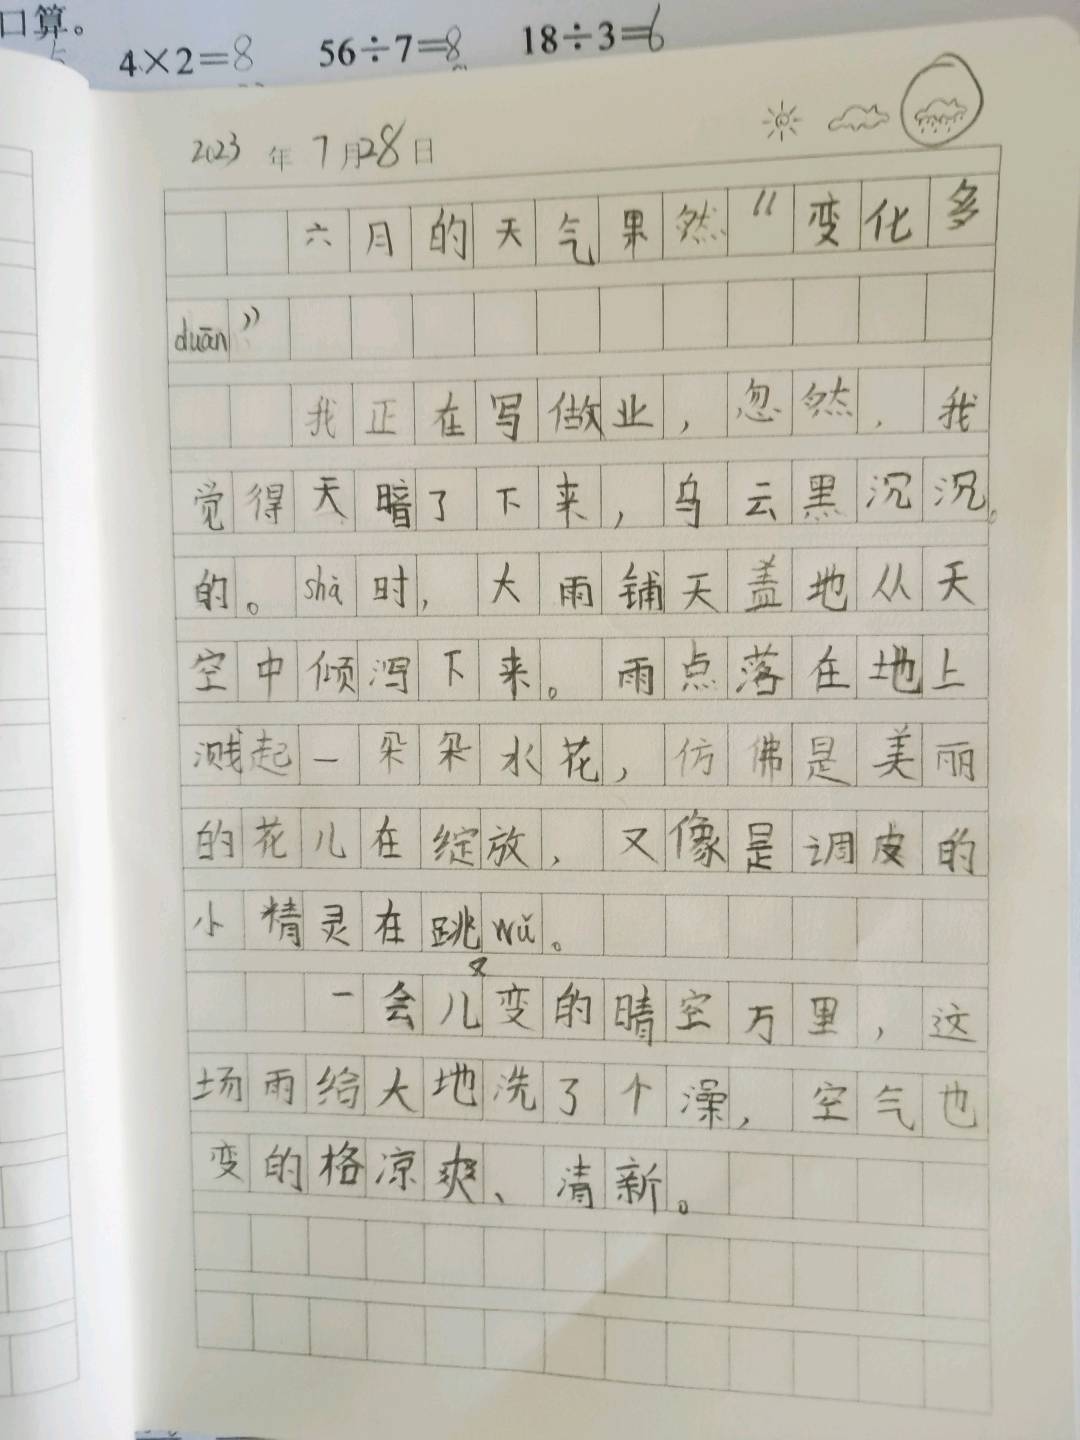 口算。
4×2=8 56÷7=8 18÷3=6
2023年7月28日
六月的天气果然“变化多
duān”
我正在写做业，忽然，我
觉得天暗了下来，乌云黑沉沉。
的。shà时，大雨铺天盖地从天
空中倾泻下来。雨点落在地上
溅起一朵朵水花，仿佛是美丽
的花儿在绽放，又像是调皮的
小精灵在跳wǔ。
一会儿又变的晴空万里，这
场雨给大地洗了个澡，空气也
变的格凉爽、清新。